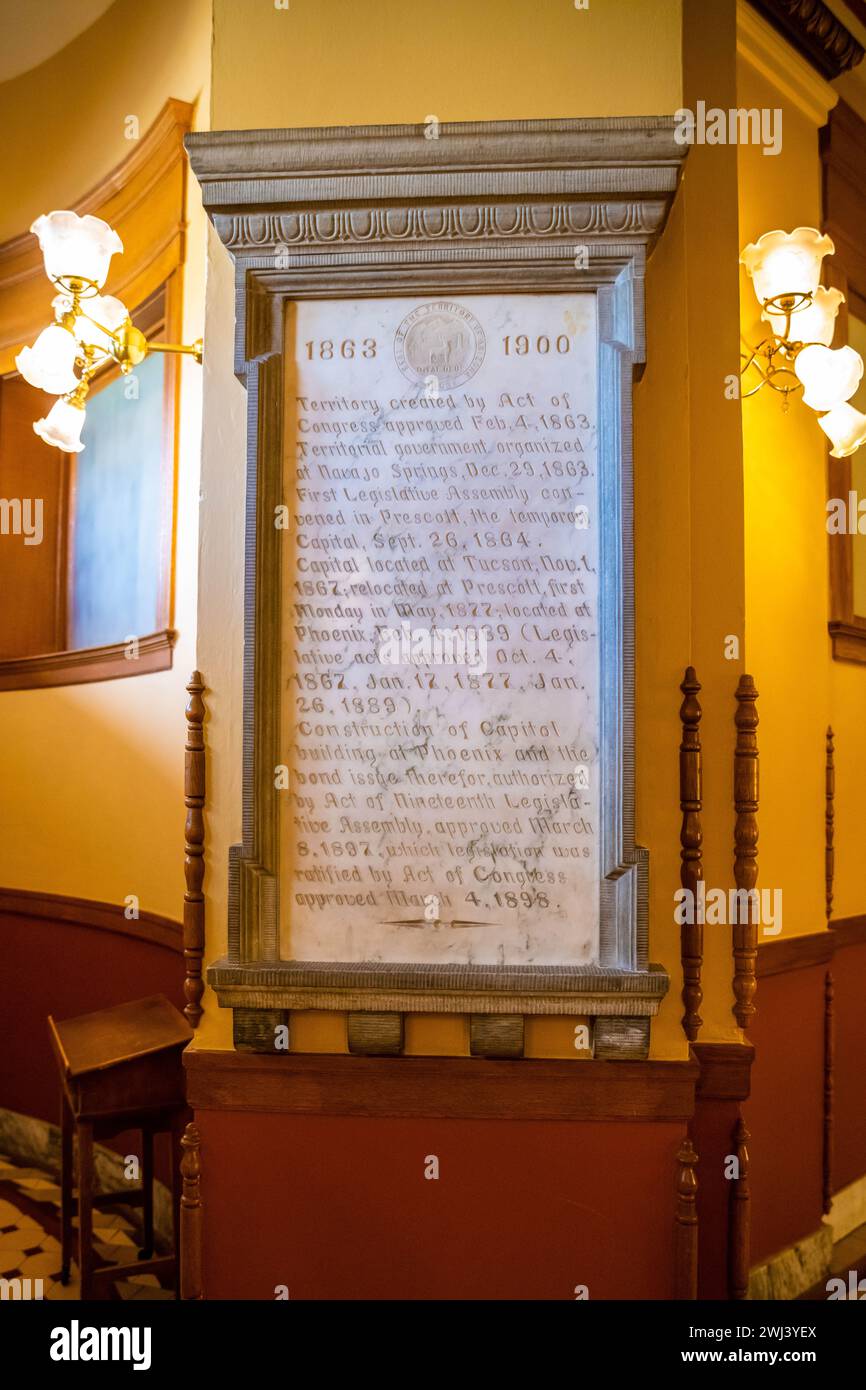 1863 1900
Territory created by Act of
Congress approved Feb. 4, 1863.
Territorial government organized
at Navajo Springs, Dec. 29, 1863.
First Legislative Assembly con-
vened in Prescott, the temporary
Capital, Sept. 26, 1864.
Capital located at Tucson, Nov. 1,
1867; relocated at Prescott, first
Monday in May, 1877; located at
Phoenix, Feb. 4, 1889 (Legis-
lative acts approved Oct. 4,
1867, Jan. 17, 1877, Jan.
26, 1889).
Construction of Capitol
building at Phoenix and the
bond issue therefor, authorized
by Act of Nineteenth Legisla-
tive Assembly, approved March
8, 1897, which legislation was
ratified by Act of Congress
approved March 4, 1898.
alamy
Image ID: 2WJ3YEX
www.alamy.com